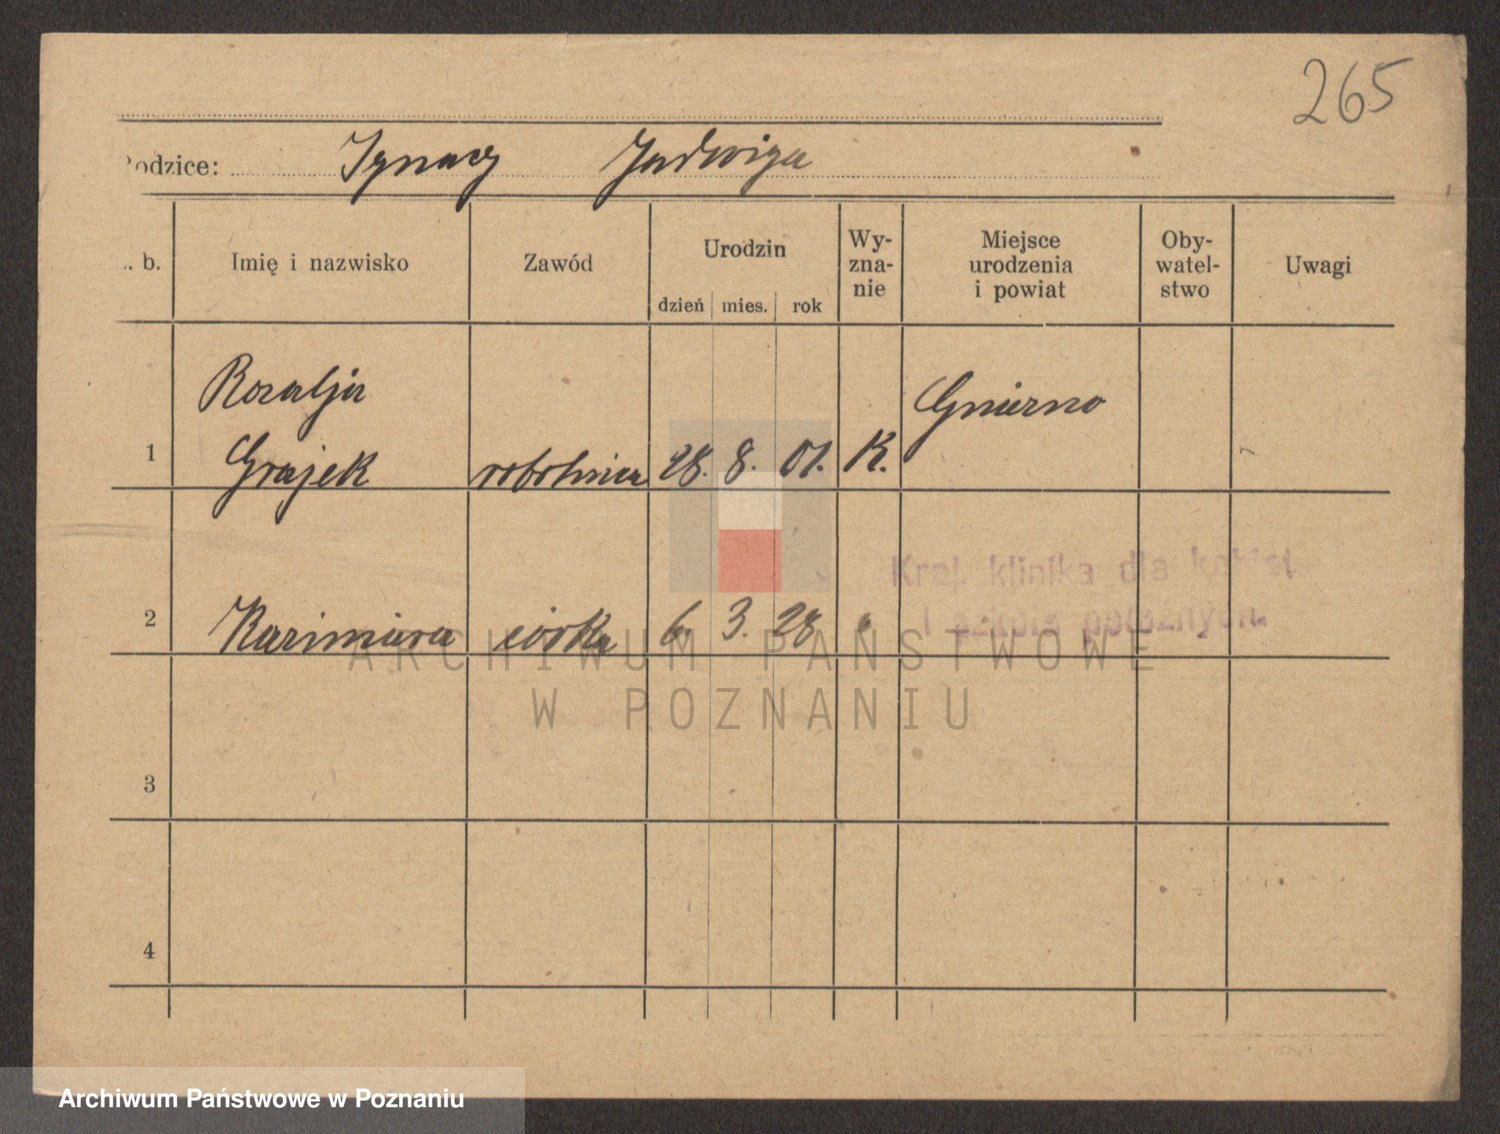 265
Rodzice: Ignacy Jadwiga
L. b. Imię i nazwisko Zawód Urodzin dzień mies. rok Wy- zna- nie Miejsce urodzenia i powiat Oby- watel- stwo Uwagi
Rozalja Gniezno
1 Grajek robotnica 28. 8. 01. K.
Kral. klinika dla kobiet
i szkoła położnych.
2 Kazimiera córka 6. 3. 28 "
ARCHIWUM PAŃSTWOWE
W POZNANIU
3
4
Archiwum Państwowe w Poznaniu